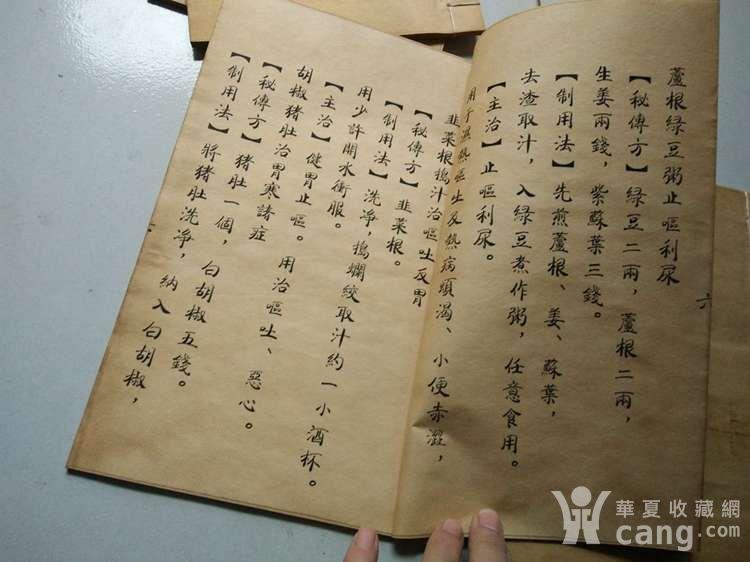 蘆根綠豆粥止嘔利尿
【秘傳方】綠豆二兩，蘆根二兩，
生姜兩錢，紫蘇葉三錢。
【制用法】先煎蘆根、姜、蘇葉，
去渣取汁，入綠豆煮作粥，任意食用。
【主治】止嘔利尿。
用于濕熱嘔吐及熱病煩渴、小便赤澀，
六
韭菜根搗汁治嘔吐反胃
【秘傳方】韭菜根。
【制用法】洗凈，搗爛絞取汁約一小酒杯。
用少許開水衝服。
【主治】健胃止嘔。用治嘔吐、惡心。
胡椒豬肚治胃寒諸症
【秘傳方】豬肚一個，白胡椒五錢。
【制用法】將豬肚洗凈，納入白胡椒，
華夏收藏網
cang.com